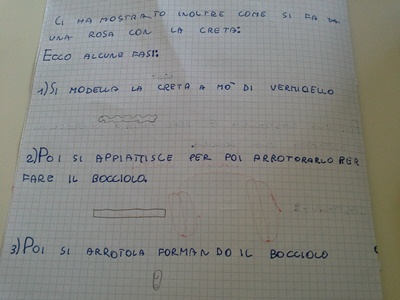 CI HA MOSTRATO INOLTRE COME SI FA
UNA ROSA CON LA CRETA:
ECCO ALCUNE FASI:
1) SI MODELLA LA CRETA A MO' DI VERMICELLO
2) POI SI APPIATTISCE PER POI ARROTORARLO PER
FARE IL BOCCIOLO.
3) POI SI ARROTOLA FORMANDO IL BOCCIOLO